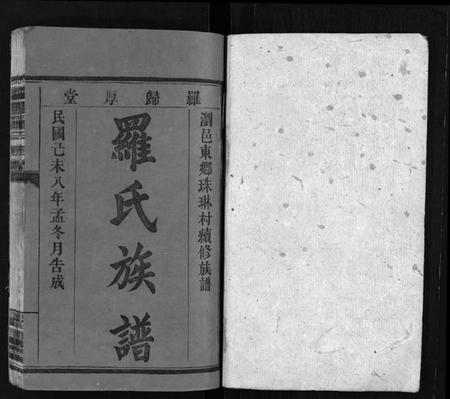 羅歸厚堂
瀏邑東鄉珠琳村續修族譜
羅氏族譜
民國己未八年孟冬月告成